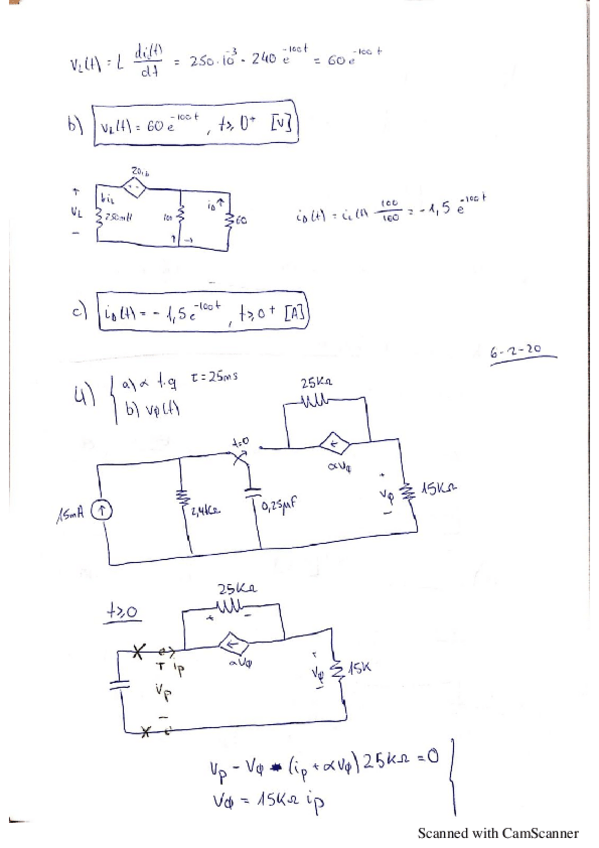 v_L(t) = L di(t)/dt = 250·10^-3 · 240 e^-100t = 60 e^-100t
b) v_L(t) = 60 e^-100t, t≥0+ [V]
20i_Δ
V_L
250mH
60
i_o(t) = i_L(t) 100/160 = -1,5 e^-100t
c) i_o(t) = -1,5 e^-100t, t≥0+ [A]
6-2-20
4) a) α t.q τ=25ms
b) vφ(t)
25KΩ
t=0
αVφ
15mA
2,4KΩ
0,25μF
Vφ
15KΩ
t≥0
25KΩ
+ -
αVφ
i_p
V_p
Vφ
15K
V_p - Vφ - (i_p + αVφ) 25KΩ = 0
Vφ = 15KΩ i_p
Scanned with CamScanner